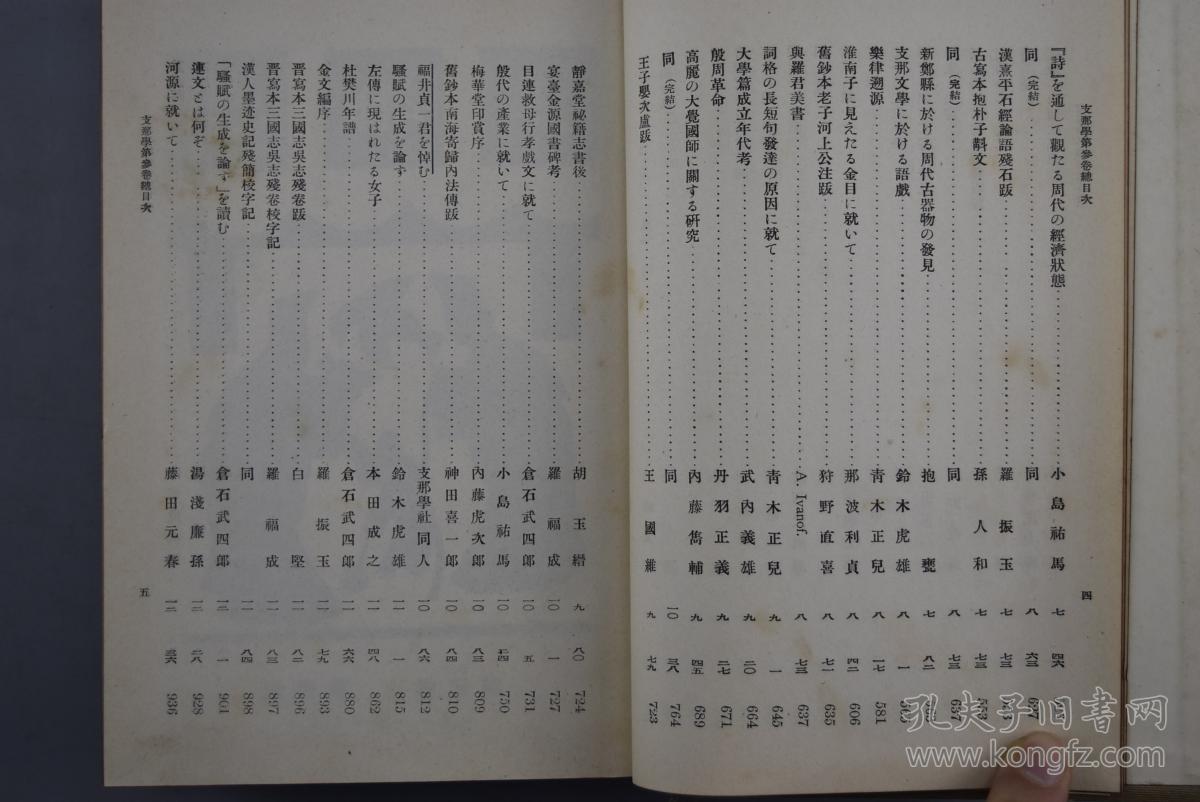 支那學第參卷總目次
四
『詩』を通して觀たる周代の經濟狀態 小島祐馬 七 四六
同(完結) 同 八 六三
漢熹平石經論語殘石跋 羅振玉 七
古寫本抱朴子斠文 孫人和 七 七三
同(完結) 同 八 七三 637
新鄭縣に於ける周代古器物の發見 抱甕 七 八二
支那文學に於ける語戲 鈴木虎雄 八 一
樂律遡源 靑木正兒 八 一七 581
淮南子に見えたる金目に就いて 那波利貞 八 四二 606
舊鈔本老子河上公注跋 狩野直喜 八 七一 635
與羅君美書 A. Ivanof. 八 七三 637
詞格の長短句發達の原因に就て 靑木正兒 九 一 645
大學篇成立年代考 武內義雄 九 二〇 664
殷周革命 丹羽正義 九 二七 671
高麗の大覺國師に關する硏究 內藤雋輔 九 四五 689
同(完結) 同 一〇 三八 764
王子嬰次盧跋 王國維 九 七九 723
靜嘉堂祕籍志書後 胡玉縉 九 八〇 724
宴臺金源國書碑考 羅福成 一〇 一 727
目連救母行孝戲文に就て 倉石武四郞 一〇 五 731
殷代の產業に就いて 小島祐馬 一〇 二四 750
梅華堂印賞序 內藤虎次郞 一〇 八三 809
舊鈔本南海寄歸內法傳跋 神田喜一郞 一〇 八四 810
福井貞一君を悼む 支那學社同人 一〇 八六 812
騷賦の生成を論ず 鈴木虎雄 一一 一 815
左傳に現はれたる女子 本田成之 一一 四八 862
杜樊川年譜 倉石武四郞 一一 六六 880
金文編序 羅振玉 一一 七九 893
晋寫本三國志吳志殘卷跋 白堅 一一 八二 896
晋寫本三國志吳志殘卷校字記 羅福成 一一 八三 897
漢人墨迹史記殘簡校字記 同 一一 八四 898
「騷賦の生成を論ず」を讀む 倉石武四郞 一二 一 901
連文とは何ぞ 湯淺廉孫 一二 二八 928
河源に就いて 藤田元春 一二 三六 936
支那學第參卷總目次
五
孔夫子旧书网
www.kongfz.com